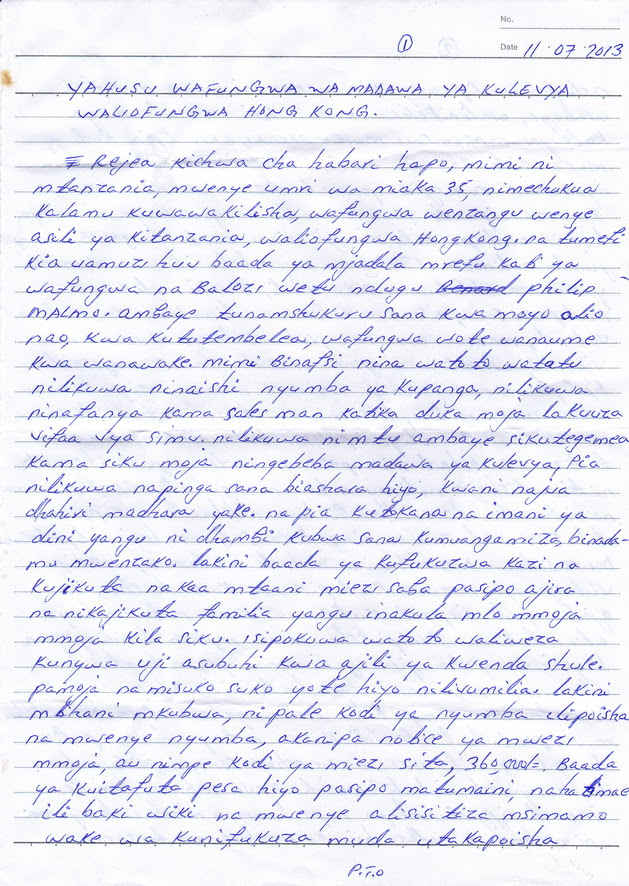 No.
①
Date 11.07.2013
YAHUSU WAFUNGWA WA MADAWA YA KULEVYA
WALIOFUNGWA HONG KONG.
Rejea kichwa cha habari hapo, mimi ni
mtanzania, mwenye umri wa miaka 35, nimechukua
kalamu kuwawakilisha, wafungwa wenzangu wenye
asili ya kitanzania, waliofungwa HongKong. na tumefi
kia uamuzi huu baada ya mjadala mrefu kati ya
wafungwa na Balozi wetu ndugu Benard philip
MALMO. ambaye tunamshukuru sana kwa moyo alio
nao, kwa kututembelea, wafungwa wote wanaume
kwa wanawake. mimi Binafsi nina watoto watatu
nilikuwa ninaishi nyumba ya kupanga, nilikuwa
ninafanya kama sales man katika duka moja lakuuza
vifaa vya simu. nilikuwa ni mtu ambaye sikutegemea
kama siku moja ningebeba madawa ya kulevya, Pia
nilikuwa napinga sana biashara hiyo, kwani najua
dhahiri madhara yake. na pia kutokana na imani ya
dini yangu ni dhambi kubwa sana kumuangamiza, binada-
mu mwenzako. lakini baada ya kufukuzwa kazi na
kujikuta nakaa mtaani miezi saba pasipo ajira
na nikajikuta familia yangu inakula mlo mmoja
mmoja kila siku. isipokuwa watoto waliweza
kunywa uji asubuhi kwa ajili ya kwenda shule.
pamoja na misuko suko yote hiyo nilivumilia. lakini
mtihani mkubwa, ni pale kodi ya nyumba ilipoisha
na mwenye nyumba, akanipa notice ya mwezi
mmoja, au nimpe kodi ya miezi sita, 360,000/=. Baada
ya kuitafuta pesa hiyo pasipo matumaini, nahatimae
ili baki wiki na mwenye alisisitiza msimamo
wake wa kunifukuza muda utakapoisha
P.T.O